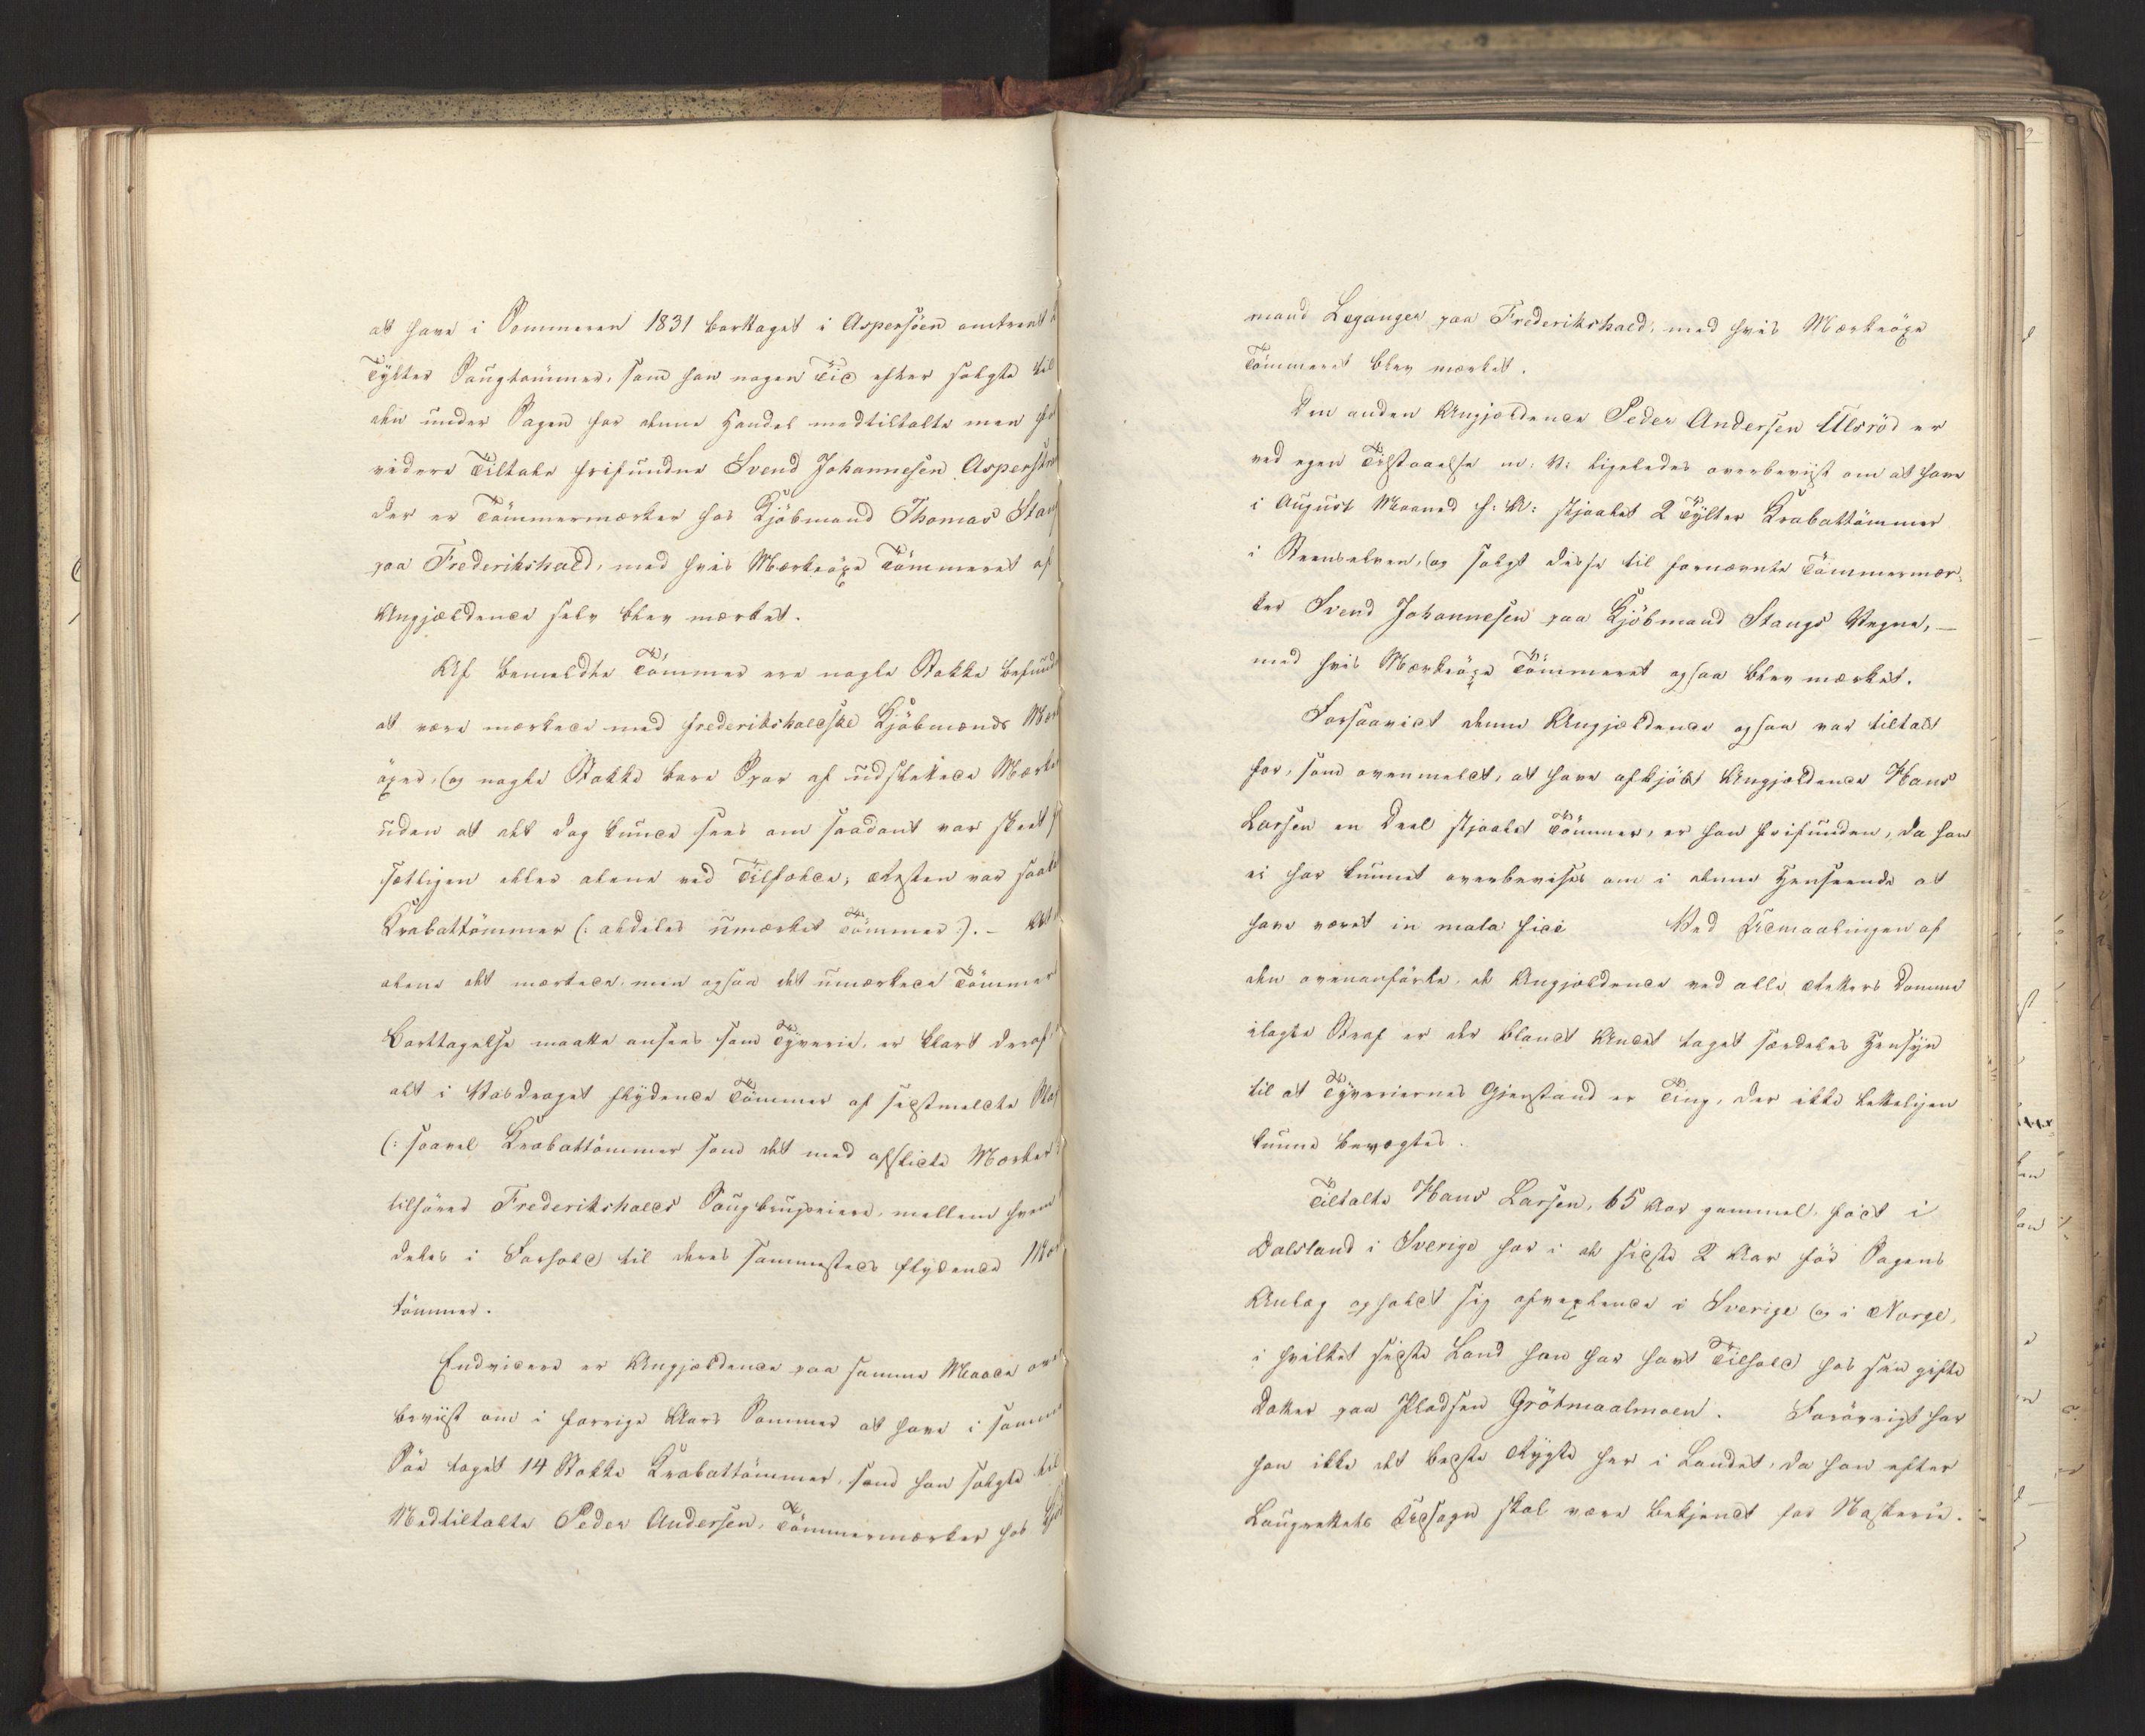 at have i Sommeren 1831 borttaget i Aspersöen omtrent
Tylter Saugtømmer, som han nogen Tid efter solgte til
den under Sagen for denne Handel medtiltalte men for
videre Tiltale frifundne Svend Johannesen Asperström
der er Tömmermærker hos Kjöbmand Thomas Stang
paa Frederikshald, med hvis Mærkeöxe Tömmeret af
Angjældende selv blev mærket.
Af bemeldte Tömmer ere nogle Stokke befund
at være mærkede med frederikshaldske Kjöbmænds Mær
öxer, og nogle Stokke bare Spor af udslettede Mærker
uden at det dog kunde sees om saadant var skeet
sætligen eller alene ved Tilfælde; Resten var saak
Krabattömmer (: aldeles umærket Tömmer :). – At
alene det mærkede, men ogsaa det umærkede Tömmer
Borttagelse maatte ansees som Tyverie, er klart deraf,
alt i Vasdraget flydende Tömmer af sidstmeldte Slag
(: saavel Krabattömmer som det med afslidte Mærker :
tilhörer Frederikshalds Saugbrugseiere, mellem hvem
deles i Forhold til deres sammesteds flydende Mær
tömmer.
Endvidere er Angjældende paa samme Maade over
beviist om i forrige Aars Sommer at have i samme
Söe taget 14 Stokke Krabattömmer, som han solgte til
Medtiltalte Peder Andersen, Tömmermærker hos Kjöb
mand Leganger paa Frederikshald, med hvis Mærkeöxe
Tömmeret blev mærket.
Den anden Angjældende Peder Andersen Ulsröd er
ved egen Tilstaaelse m: V: ligeledes overbeviist om at have
i August Maaned f: A: stjaalet 2 Tylter Krabattömmer
i Steenselven, og solgt disse til fornævnte Tömmermær-
ker Svend Johannesen paa Kjöbmand Stangs Vegne, –
med hvis Mærkeöxe Tömmeret ogsaa blev mærket.
Forsaavidt denne Angjældende ogsaa var tiltalt
for, som ovenmeldt, at have afkjöbt Angjældende Hans
Larsen en Deel stjaalet Tömmer, er han frifunden, da han
ei har kunnet overbevises om i denne Henseende at
have været in mala fide Ved Udmaalingen af
den ovenanförte, de Angjældende ved alle Retters Domme
ilagte Straf er der blandt Andet taget særdeles Hensyn
til at Tyveriernes Gjenstand er Ting, der ikke letteligen
kunne bevogtes.
Tiltalte Hans Larsen, 65 Aar gammel, födt i
Dalsland i Sverige har i de sidste 2 Aar för Sagens
Anlæg opholdt sig afvexlende i Sverige og i Norge,
i hvilket sidste Land han har havt Tilhold hos sin gifte
Datter paa Pladsen Grötmaalmoen. Forövrigt har
han ikke det bedste Rygte her i Landet, da han efter
Laugrettets Udsagn skal være bekjendt for Naskerie.